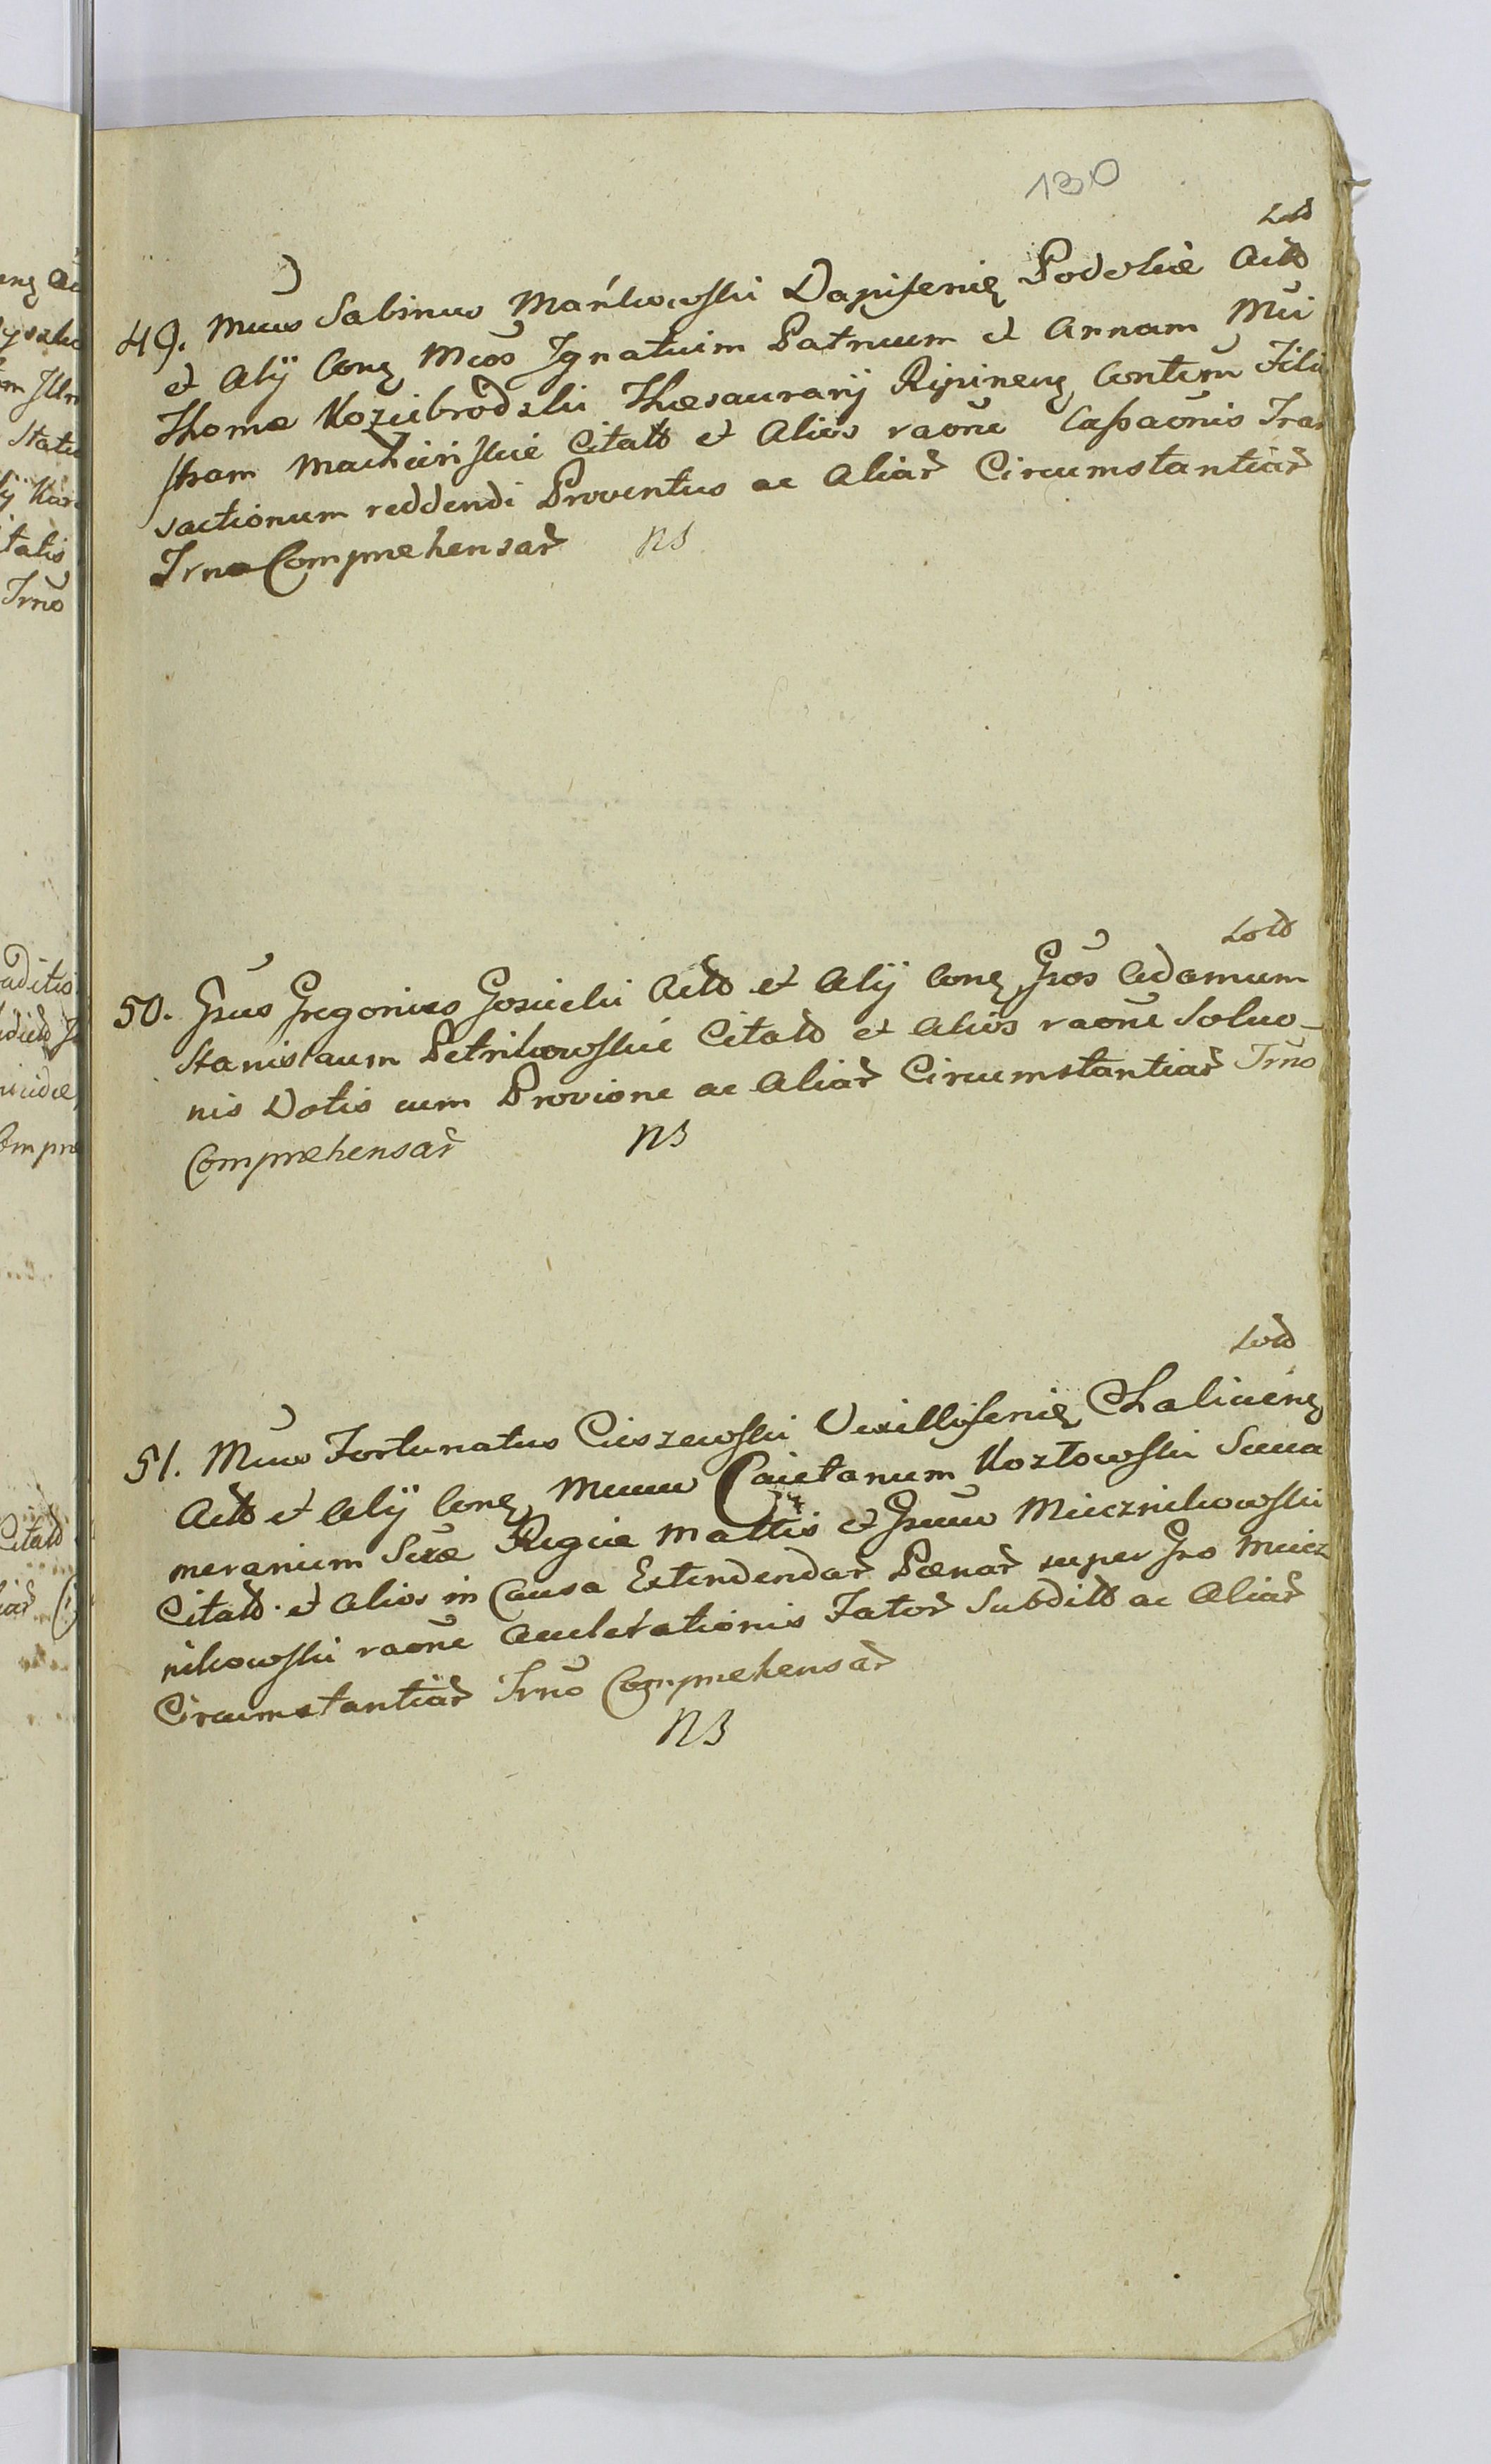 130
49. Mūus Sabinus Mańkowski Dapiferię Podoliæ Actō
et Alÿ Conę Mūos Ignatium Patruum et Annam Mūi
Thomæ Koziebrodzki Thesaurarÿ Ripinenę Contem Filii
Citatō et Alios raōne Cassaōnis Tran
sactionum reddendi Proventus ac Aliar̄ Circumstantiar̄
Trno Comprehensar̄ NB
Lotō
50. Gsūs Gregorius Gosiecki Actō et Alÿ Conę Gsōs Adamum
Stanislaum Petrikowskie Citatō et Alios raōne Soluo-
nis Dotis cum Provione ac Aliar̄ Circumstantiar̄ Trnō
Comprehensar̄ NB
Lotō
51. Mūus Fortunatus Cieszewski Vexilliferię Chalicienę
Actō et Alÿ Conę Muum Caietanum Kozłowski Succa
merarium Scræ Regiæ Mattis et Gsuum Miecznikowski
Citatō et Alios in Causa Extendendar̄ Pænar̄ super Gso Miecz
nikowski raōne Fator̄ Subditō ac Aliar̄
Circumstantiar̄ Trnō Comprehensar̄
NB